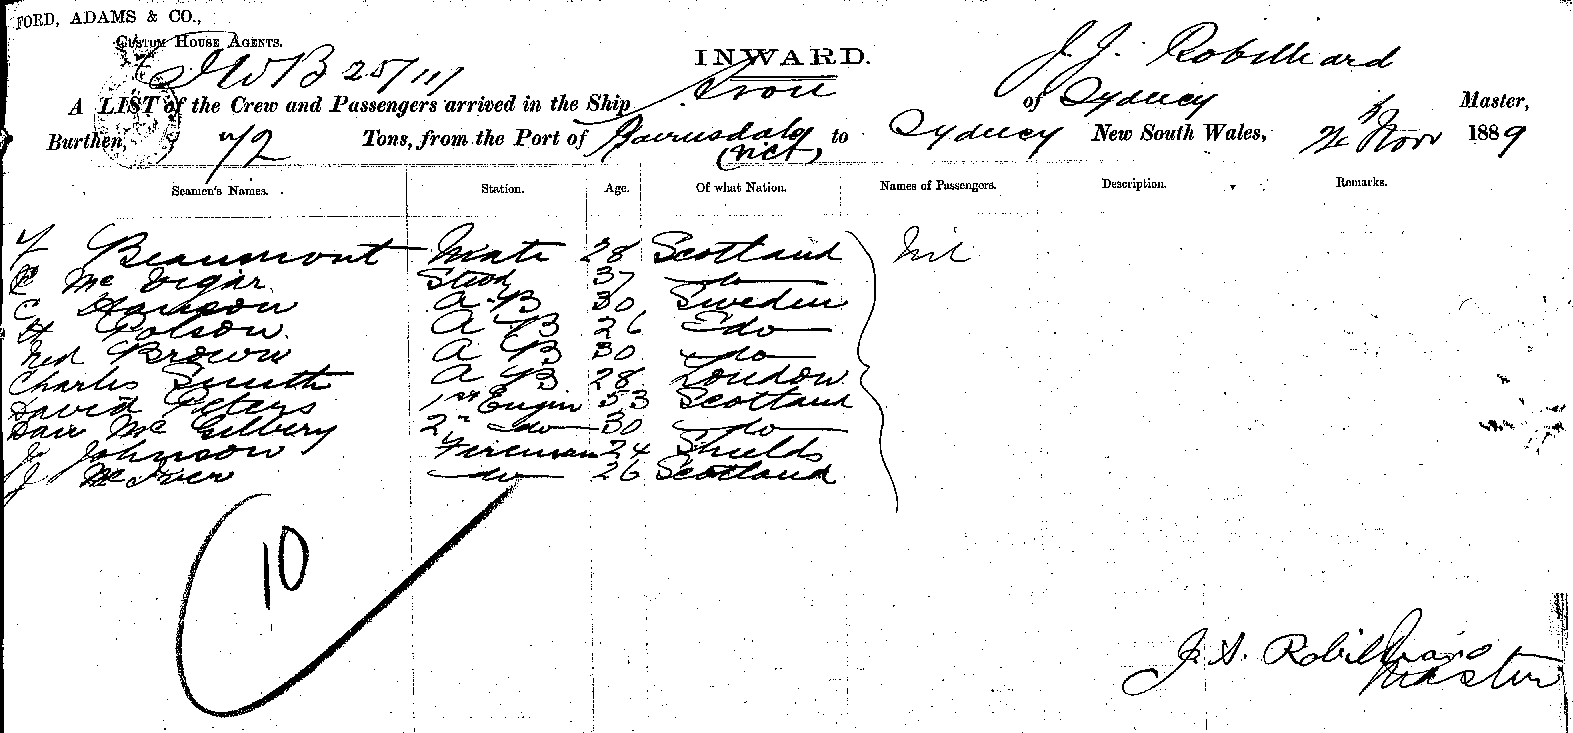 FORD, ADAMS & CO.,
CUSTOM HOUSE AGENTS.
INWARD.
J. J. Robilliard
A LIST of the Crew and Passengers arrived in the Ship of Sydney Master,
Burthen, 72 Tons, from the Port of Bairnsdale (Vict) to Sydney New South Wales, Nov 1889
Seamen's Names. Station. Age. Of what Nation. Names of Passengers. Description. Remarks.
Beaumont Mate 28 Scotland Nil
Mc Vigar Stwd 37 do
C Hanson A.B 30 Sweden
H Polson A B 26 do
Ned Brown A B 30 do
Charles Smith A B 28 London
David Peters 1st Engin 53 Scotland
Dave Mc Gilbery 2n do 30 do
J. Johnson Fireman 24 Shields
J McIver do 26 Scotland
10
J. S. Robilliard
Master